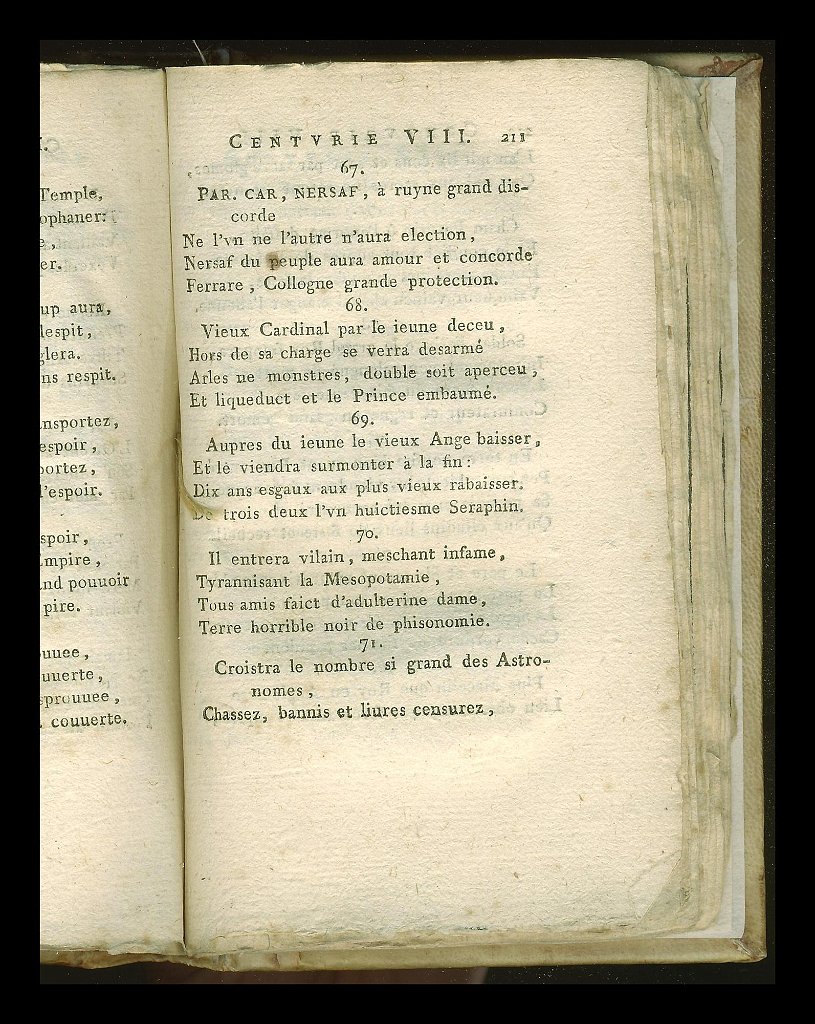 Temple,
ophaner:
e,
er.
up aura,
lespit,
glera.
ns respit.
nsportez,
espoir,
portez,
l'espoir.
spoir,
mpire,
nd pouuoir
pire.
uuee,
uuerte,
sprouuee,
couuerte.
CENTVRIE VIII. 211
67.
PAR. CAR, NERSAF, à ruyne grand dis-
corde
Ne l'vn ne l'autre n'aura election,
Nersaf du peuple aura amour et concorde
Ferrare, Collogne grande protection.
68.
Vieux Cardinal par le ieune deceu,
Hors de sa charge se verra desarmé
Arles ne monstres, double soit aperceu,
Et liqueduct et le Prince embaumé.
69.
Aupres du ieune le vieux Ange baisser,
Et le viendra surmonter à la fin:
Dix ans esgaux aux plus vieux rabaisser.
De trois deux l'vn huictiesme Seraphin.
70.
Il entrera vilain, meschant infame,
Tyrannisant la Mesopotamie,
Tous amis faict d'adulterine dame,
Terre horrible noir de phisonomie.
71.
Croistra le nombre si grand des Astro-
nomes,
Chassez, bannis et liures censurez,